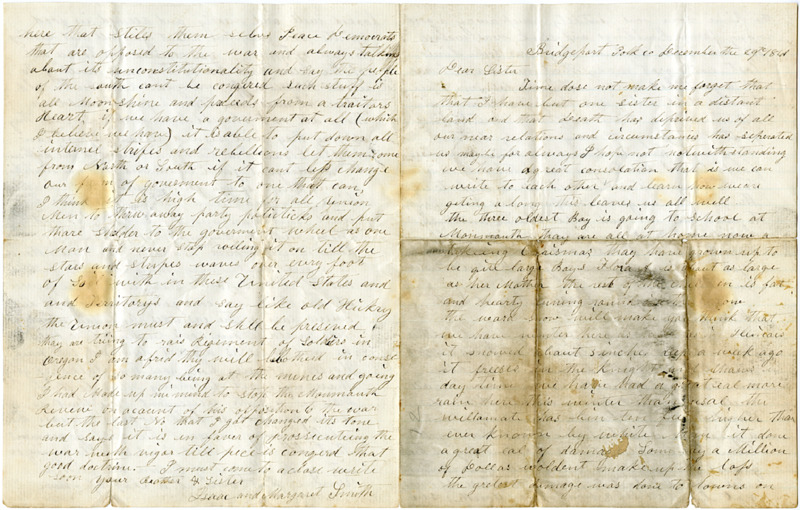 Bridgeport Polk co December the 29th 1861
Dear Sister
Time dose not make me forget that
that I have but one sister in a distant
land and that Death has deprived us of all
our near relations and circumstances has seperated
us maybe for always I hope not notwithstanding
we have a great consolation that is we can
write to each other and learn how we are
geting along this leaves us all well
the three oldest Boy is going to school at
Monmouth thay are all at home now a
takeing Crismas thay have grown up to
be quite large Boys is about as large
as her Mother the rest of the is fat
and hearty runing round
the snow will make you think that
we have winter here as well as in Ilinois
it snowed about six inches deep a week ago
it freeses in the Knight and thaws
day time we have had a great eal more
rain here this winter than usal the
willamate has bin ten feet higher than
ever known by white it done
a great eal of damage Some say a Million
of Dollars wouldent make up the loss
the gretest damage was done to towns on
here that stiles them selves Peace Democrats
that are opposed to the war and always talking
about its unconstitutionality and say the people
of the south cant be conqired such stuff is
all Moonshine and proceeds from a traitors
Heart if we have a goverment at all (which
I believe we have) it is able to put down all
internel strifes and rebellions let them come
from North or South if it cant lets change
our form of goverment to one that can
I think it is high time for all union
Men to throw away party politicks and put
thare sholder to the goverment wheel as one
Man and never stop roling it on till the
stars and stripes waves over every foot
of Soil with in these United states and
and teritorys and say like old Hickory
the Union must and shall be preserved
thay are trying to rais Regement of Solders in
oregon I am afrid thy will be bothered in conse
quence of so many being at the mines and going
I had made up my mind to stop the Monmouth
on account of his opposition to the war
but the last No that I got changed its tone
and says it is in favor of prossecuteing the
war with vigor till pece is conqered that
good doctrine. I must come to a close write
soon your Brother & Sister
Isaac and Margaret Smith